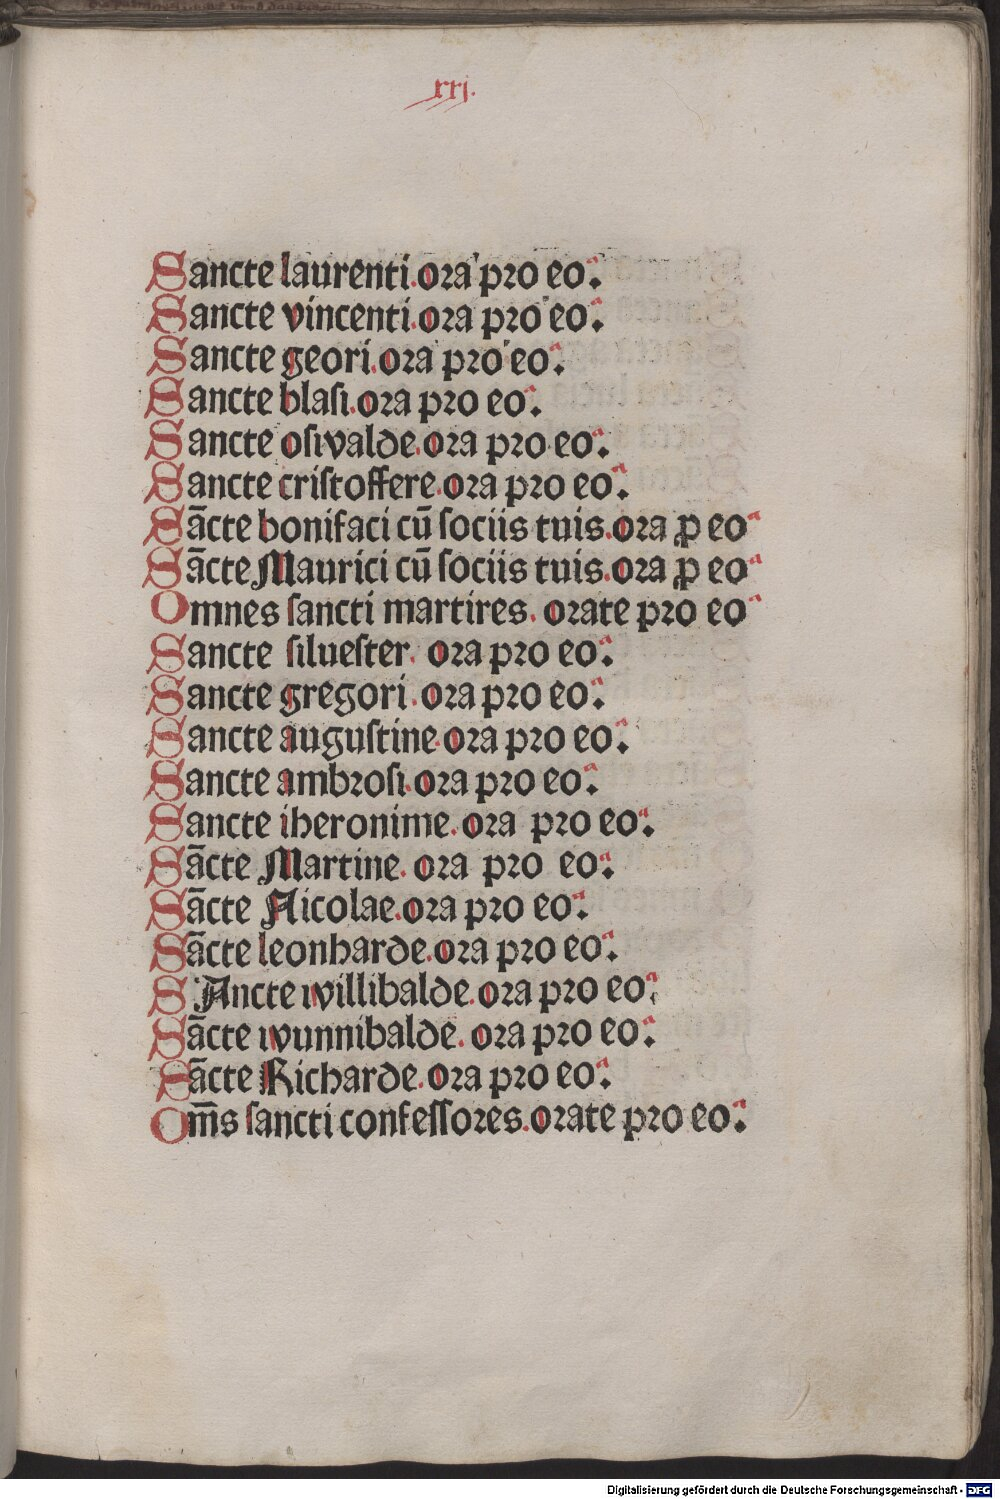 xxj.
Sancte laurenti. ora pro eo.
Sancte vincenti. ora pro eo.
Sancte geori. ora pro eo.
Sancte blasi. ora pro eo.
Sancte osivalde. ora pro eo.
Sancte cristoffere. ora pro eo.
Sācte bonifaci cū sociis tuis. ora ꝓ eo
Sācte Maurici cū sociis tuis. ora ꝓ eo
Omnes sancti martires. orate pro eo
Sancte siluester. ora pro eo.
Sancte gregori. ora pro eo.
Sancte augustine. ora pro eo.
Sancte ambrosi. ora pro eo.
Sancte iheronime. ora pro eo.
Sācte Martine. ora pro eo.
Sācte Nicolae. ora pro eo.
Sācte leonharde. ora pro eo.
SAncte willibalde. ora pro eo.
Sācte wunnibalde. ora pro eo.
Sācte Richarde. ora pro eo.
Om̄s sancti confessores. orate pro eo.
Digitalisierung gefördert durch die Deutsche Forschungsgemeinschaft - DFG